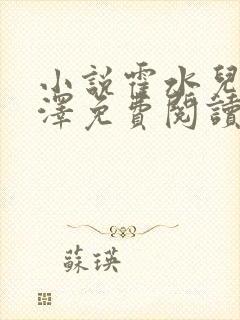 小說霍水兒
澤免費閱讀
蘇瑛